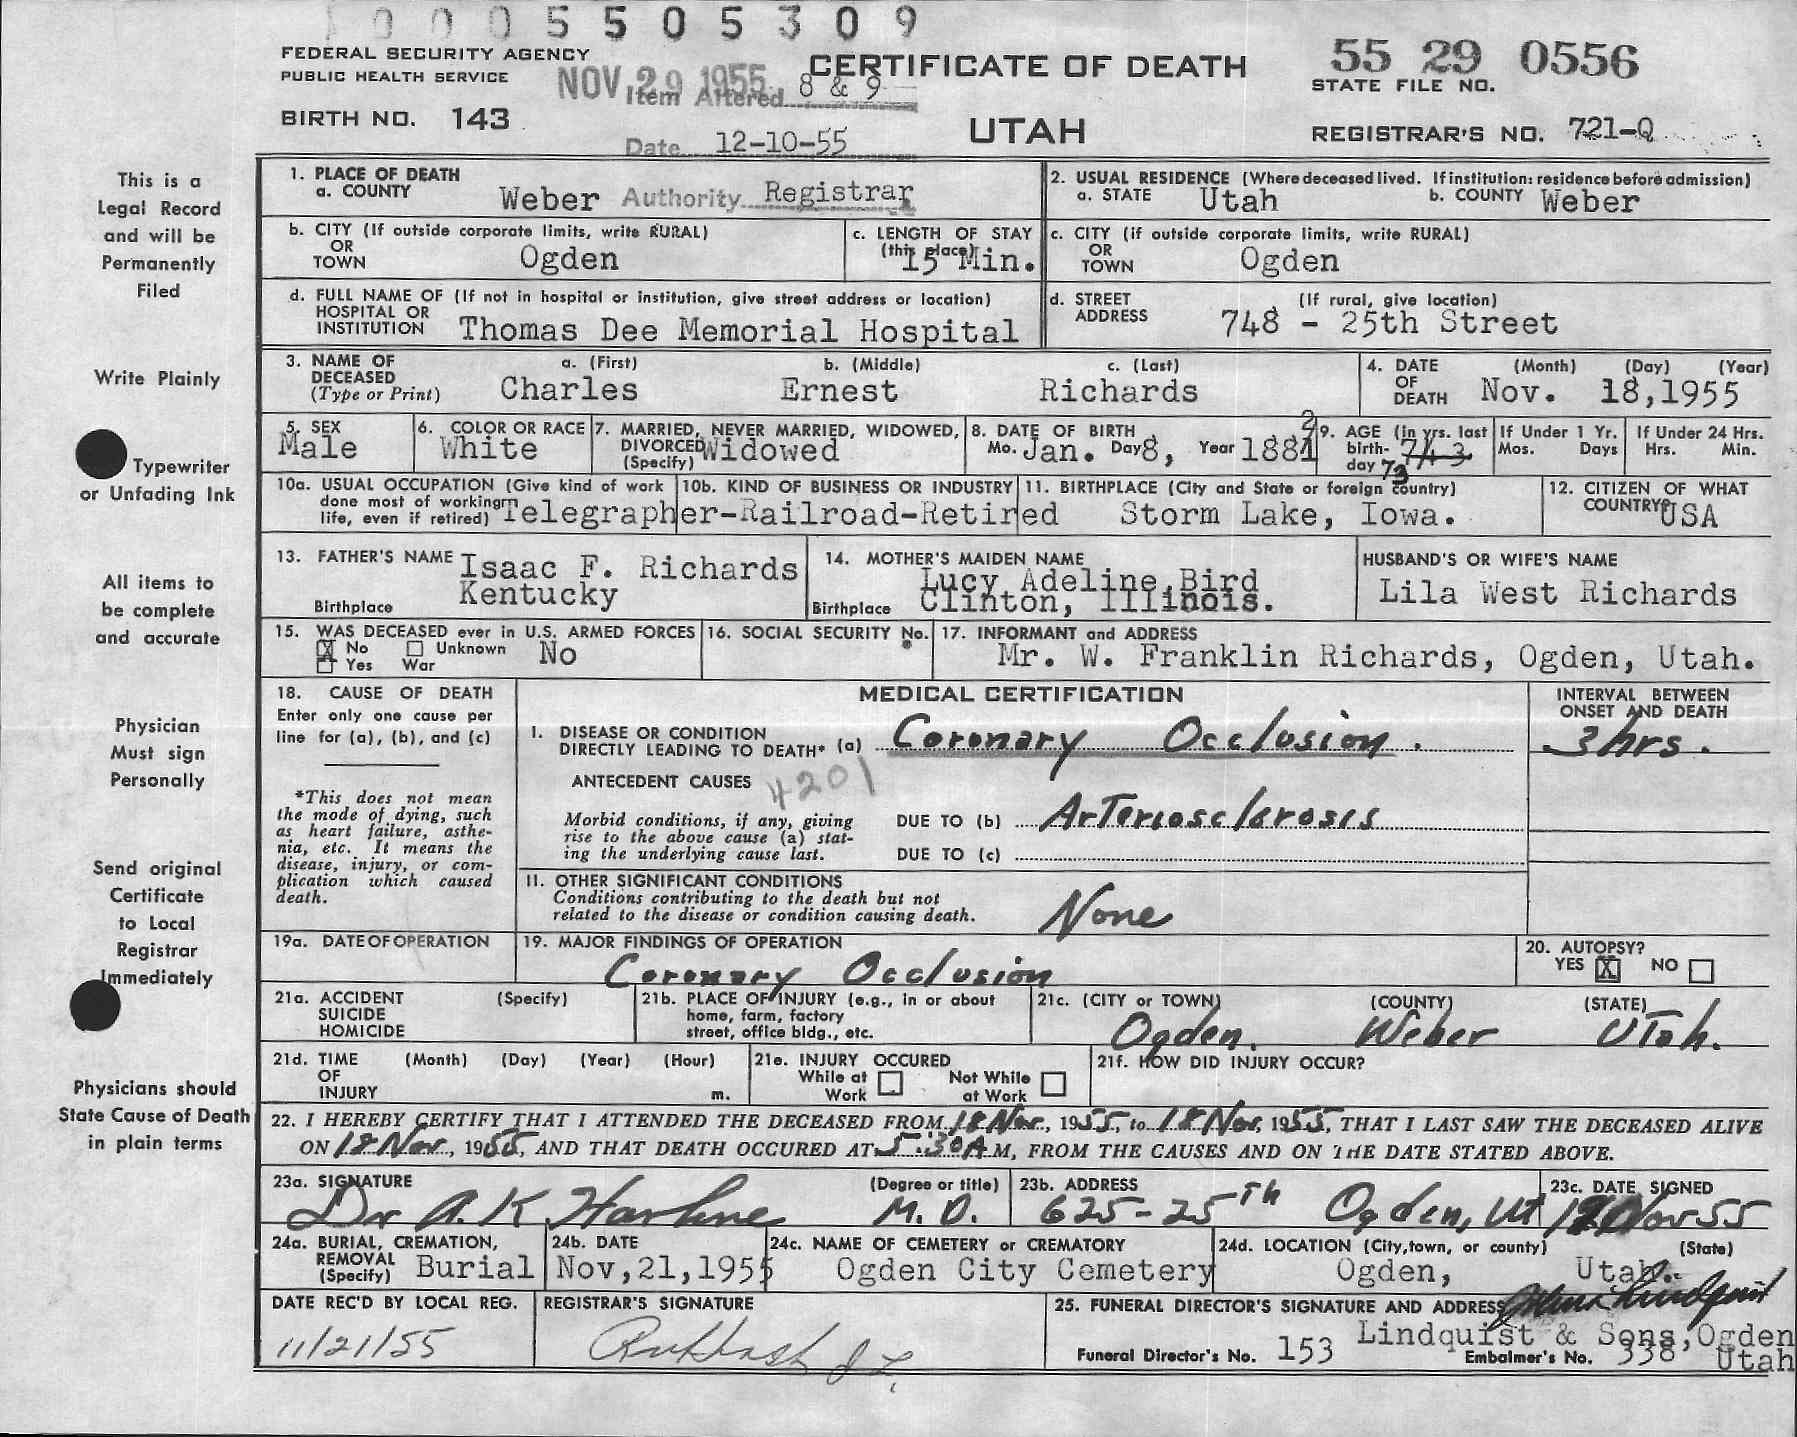 0005505309
FEDERAL SECURITY AGENCY
PUBLIC HEALTH SERVICE
NOV 29 1955
Item Altered 8 & 9
CERTIFICATE OF DEATH
55 29 0556
STATE FILE NO.
BIRTH NO. 143
Date 12-10-55
UTAH
REGISTRAR'S NO. 721-Q
This is a
Legal Record
and will be
Permanently
Filed
Write Plainly
Typewriter
or Unfading Ink
All items to
be complete
and accurate
Physician
Must sign
Personally
Send original
Certificate
to Local
Registrar
Immediately
Physicians should
State Cause of Death
in plain terms
1. PLACE OF DEATH
a. COUNTY Weber Authority Registrar
2. USUAL RESIDENCE (Where deceased lived. If institution: residence before admission)
a. STATE Utah b. COUNTY Weber
b. CITY (If outside corporate limits, write RURAL)
OR
TOWN Ogden
c. LENGTH OF STAY
(this place) 15 Min.
c. CITY (if outside corporate limits, write RURAL)
OR
TOWN Ogden
d. FULL NAME OF (If not in hospital or institution, give street address or location)
HOSPITAL OR
INSTITUTION Thomas Dee Memorial Hospital
d. STREET (If rural, give location)
ADDRESS 748 - 25th Street
3. NAME OF a. (First) b. (Middle) c. (Last)
DECEASED
(Type or Print) Charles Ernest Richards
4. DATE (Month) (Day) (Year)
OF
DEATH Nov. 18,1955
5. SEX
Male
6. COLOR OR RACE
White
7. MARRIED, NEVER MARRIED, WIDOWED,
DIVORCED Widowed
(Specify)
8. DATE OF BIRTH
Mo. Jan. Day 8, Year 1881 2
9. AGE (in yrs. last
birth- 743
day 73
If Under 1 Yr.
Mos. Days
If Under 24 Hrs.
Hrs. Min.
10a. USUAL OCCUPATION (Give kind of work
done most of working
life, even if retired) Telegrapher-Railroad-Retired
10b. KIND OF BUSINESS OR INDUSTRY
11. BIRTHPLACE (City and State or foreign country)
Storm Lake, Iowa.
12. CITIZEN OF WHAT
COUNTRY? USA
13. FATHER'S NAME Isaac F. Richards
Birthplace Kentucky
14. MOTHER'S MAIDEN NAME
Lucy Adeline Bird
Birthplace Clinton, Illinois.
HUSBAND'S OR WIFE'S NAME
Lila West Richards
15. WAS DECEASED ever in U.S. ARMED FORCES
X No Unknown No
Yes War
16. SOCIAL SECURITY No.
17. INFORMANT and ADDRESS
Mr. W. Franklin Richards, Ogden, Utah.
18. CAUSE OF DEATH
Enter only one cause per
line for (a), (b), and (c)
*This does not mean
the mode of dying, such
as heart failure, asthe-
nia, etc. It means the
disease, injury, or com-
plication which caused
death.
MEDICAL CERTIFICATION
INTERVAL BETWEEN
ONSET AND DEATH
I. DISEASE OR CONDITION
DIRECTLY LEADING TO DEATH* (a) Coronary Occlusion. 3 hrs.
ANTECEDENT CAUSES 4201
Morbid conditions, if any, giving
rise to the above cause (a) stat-
ing the underlying cause last.
DUE TO (b) Arteriosclerosis
DUE TO (c)
II. OTHER SIGNIFICANT CONDITIONS
Conditions contributing to the death but not
related to the disease or condition causing death. None
19a. DATE OF OPERATION
19. MAJOR FINDINGS OF OPERATION
Coronary Occlusion
20. AUTOPSY?
YES X NO
21a. ACCIDENT (Specify)
SUICIDE
HOMICIDE
21b. PLACE OF INJURY (e.g., in or about
home, farm, factory
street, office bldg., etc.
21c. (CITY or TOWN) (COUNTY) (STATE)
Ogden. Weber Utah.
21d. TIME (Month) (Day) (Year) (Hour)
OF
INJURY m.
21e. INJURY OCCURED
While at Work Not While at Work
21f. HOW DID INJURY OCCUR?
22. I HEREBY CERTIFY THAT I ATTENDED THE DECEASED FROM 18 Nov., 1955, to 18 Nov, 1955, THAT I LAST SAW THE DECEASED ALIVE
ON 18 Nov., 1955, AND THAT DEATH OCCURED AT 5:30 A M, FROM THE CAUSES AND ON THE DATE STATED ABOVE.
23a. SIGNATURE (Degree or title)
Dr A. K. Harline M. D.
23b. ADDRESS
625-25th Ogden, Ut
23c. DATE SIGNED
Nov 55
24a. BURIAL, CREMATION,
REMOVAL
(Specify) Burial
24b. DATE
Nov,21,1955
24c. NAME OF CEMETERY or CREMATORY
Ogden City Cemetery
24d. LOCATION (City,town, or county) (State)
Ogden, Utah.
DATE REC'D BY LOCAL REG.
11/21/55
REGISTRAR'S SIGNATURE
25. FUNERAL DIRECTOR'S SIGNATURE AND ADDRESS
Lindquist & Sons, Ogden
Utah
Funeral Director's No. 153 Embalmer's No. 338